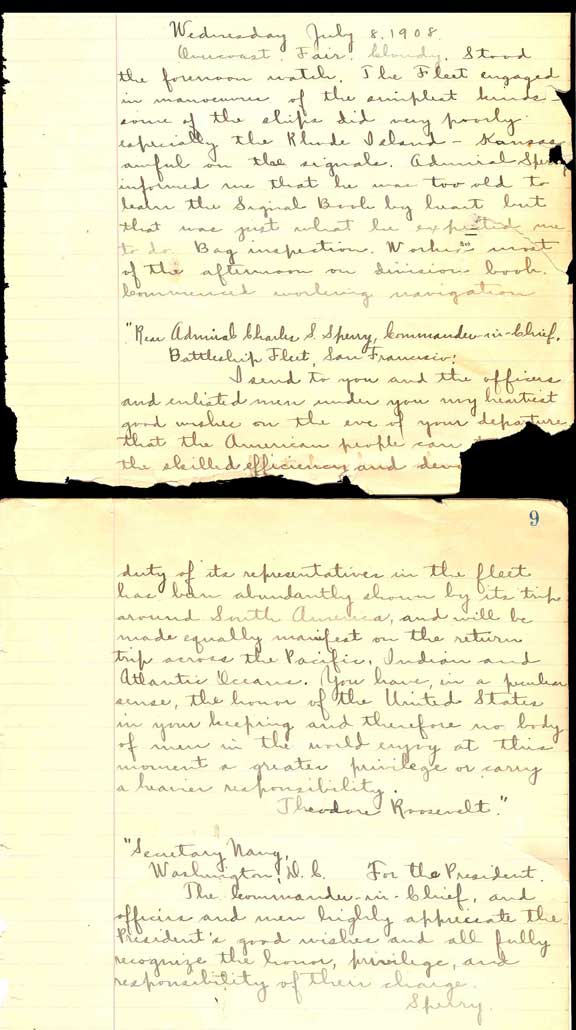 Wednesday July 8, 1908.
Overcast. Fair. Cloudy. Stood
the forenoon watch. The Fleet engaged
in manoeuvres of the simplest kinds -
some of the ships did very poorly
especially the Rhode Island - Kansas
awful on the signals. Admiral Sperry
informed me that he was too old to
learn the Signal Book by heart but
that was just what he expected me
to do. Bag inspection. Worked most
of the afternoon on division book.
Commenced working navigation
"Rear Admiral Charles S. Sperry, Commander-in-Chief,
Battleship Fleet, San Francisco:
I send to you and the officers
and enlisted men under you my heartiest
good wishes on the eve of your departure
that the American people can
the skilled efficiency and devo
9
duty of its representatives in the fleet
has been abundantly shown by its trip
around South America, and will be
made equally manifest on the return
trip across the Pacific, Indian and
Atlantic Oceans. You have, in a peculiar
sense, the honor of the United States
in your keeping and therefore no body
of men in the world enjoy at this
moment a greater privilege or carry
a heavier responsibility.
Theodore Roosevelt."
"Secretary Navy,
Washington, D.C. For the President.
The Commander-in-Chief, and
officers and men highly appreciate the
President's good wishes and all fully
recognize the honor, privilege, and
responsibility of their charge.
Sperry.